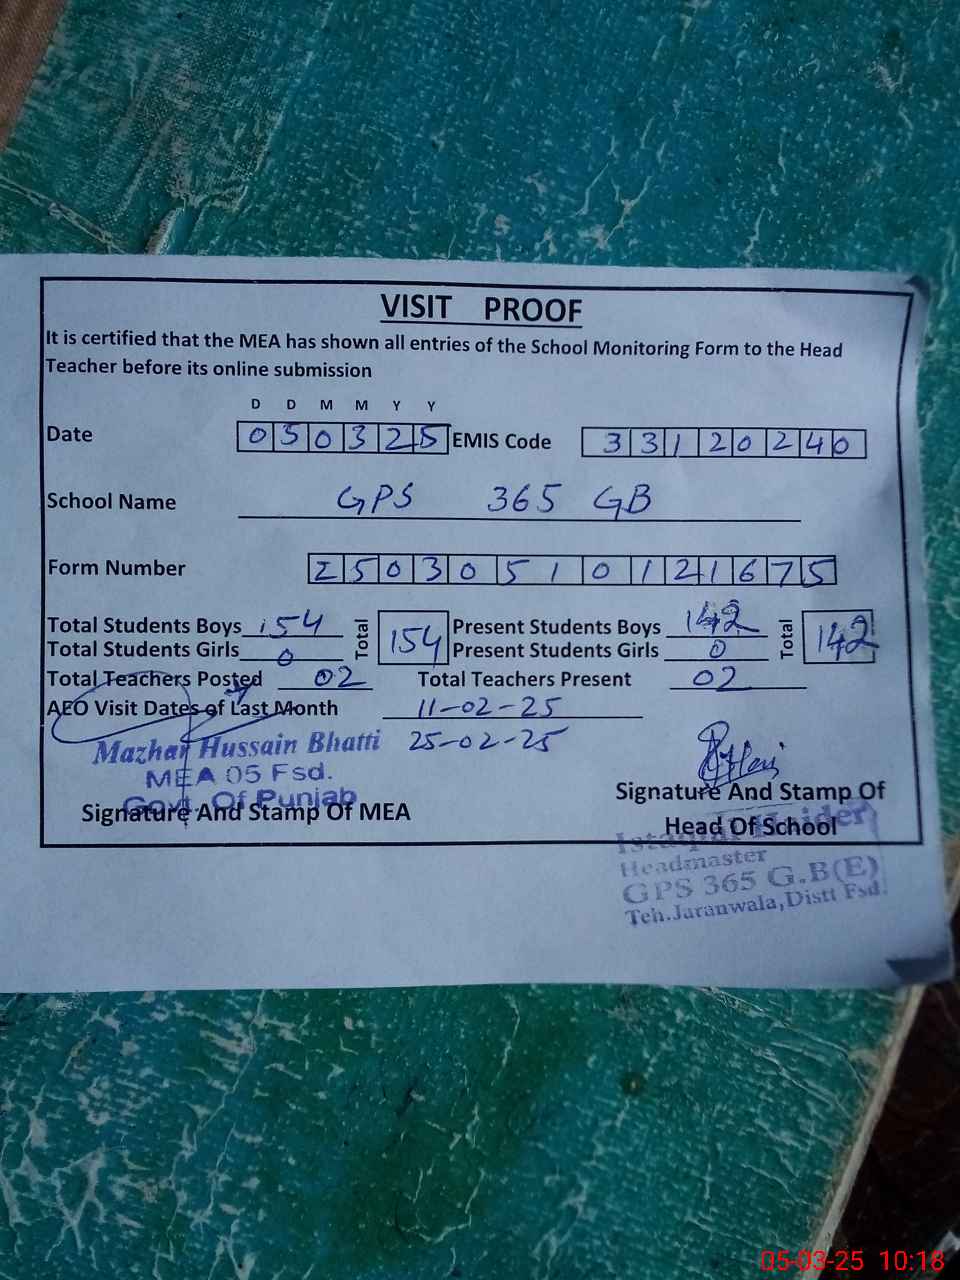 VISIT PROOF
It is certified that the MEA has shown all entries of the School Monitoring Form to the Head
Teacher before its online submission
D D M M Y Y
Date 0 5 0 3 2 5 EMIS Code 3 3 1 2 0 2 4 0
School Name GPS 365 GB
Form Number 2 5 0 3 0 5 1 0 1 2 1 6 7 5
Total Students Boys 154 Total 154 Present Students Boys 142 Total 142
Total Students Girls 0 Present Students Girls 0
Total Teachers Posted 02 Total Teachers Present 02
AEO Visit Dates of Last Month 11-02-25
25-02-25
Mazhar Hussain Bhatti
MEA 05 Fsd.
Govt. Of Punjab
Signature And Stamp Of MEA
Signature And Stamp Of
Head Of School
Haider
Headmaster
GPS 365 G.B(E)
Teh.Jaranwala,Distt Fsd.
05-03-25 10:18